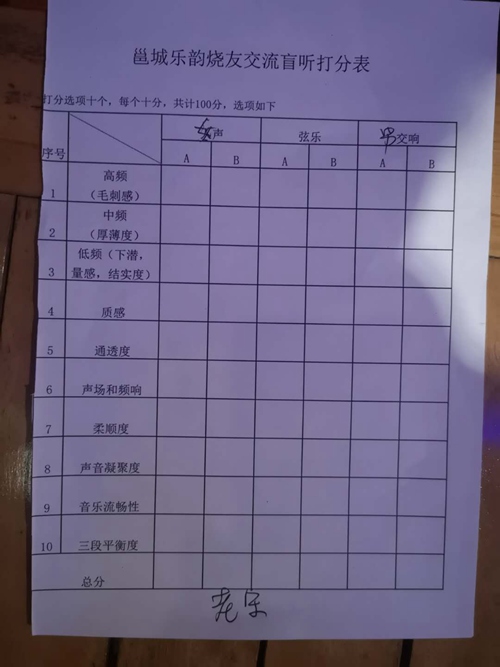 邕城乐韵烧友交流盲听打分表
打分选项十个，每个十分，共计100分，选项如下
序号 女声 弦乐 男交响
A B A B A B
1 高频（毛刺感）
2 中频（厚薄度）
3 低频（下潜，量感，结实度）
4 质感
5 通透度
6 声场和频响
7 柔顺度
8 声音凝聚度
9 音乐流畅性
10 三段平衡度
总分